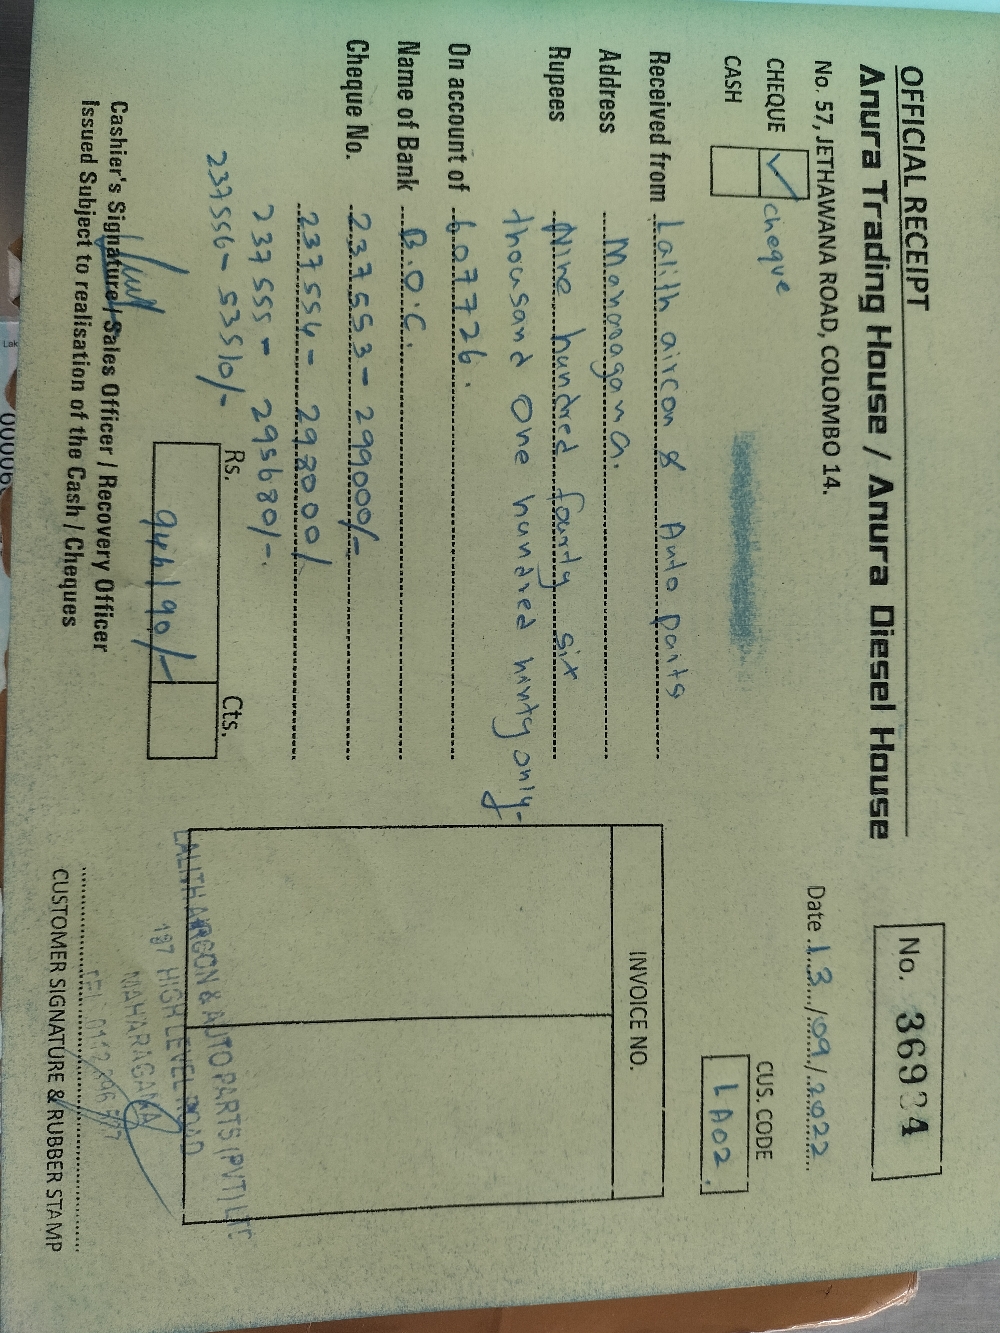 OFFICIAL RECEIPT
Anura Trading House / Anura Diesel House
No. 57, JETHAWANA ROAD, COLOMBO 14.
No. 36934
Date 13/09/2022
CHEQUE ✓ cheque
CASH
CUS. CODE
LA02
Received from Lalith aircon & Auto parts
Address Maharagana.
Rupees Nine hundred fourty six
thousand One hundred ninty only-
On account of 607726.
Name of Bank B.O.C.
Cheque No. 237553 - 299000/-
237554 - 298000/
237555 - 295680/-.
237556 - 53510/-
INVOICE NO.
Rs. Cts.
946190/-
LALITH AIRCON & AUTO PARTS (PVT) LTD
187 HIGH LEVEL ROAD
MAHARAGAMA
TEL 0112
Cashier's Signature / Sales Officer / Recovery Officer
Issued Subject to realisation of the Cash / Cheques
CUSTOMER SIGNATURE & RUBBER STAMP
Lak